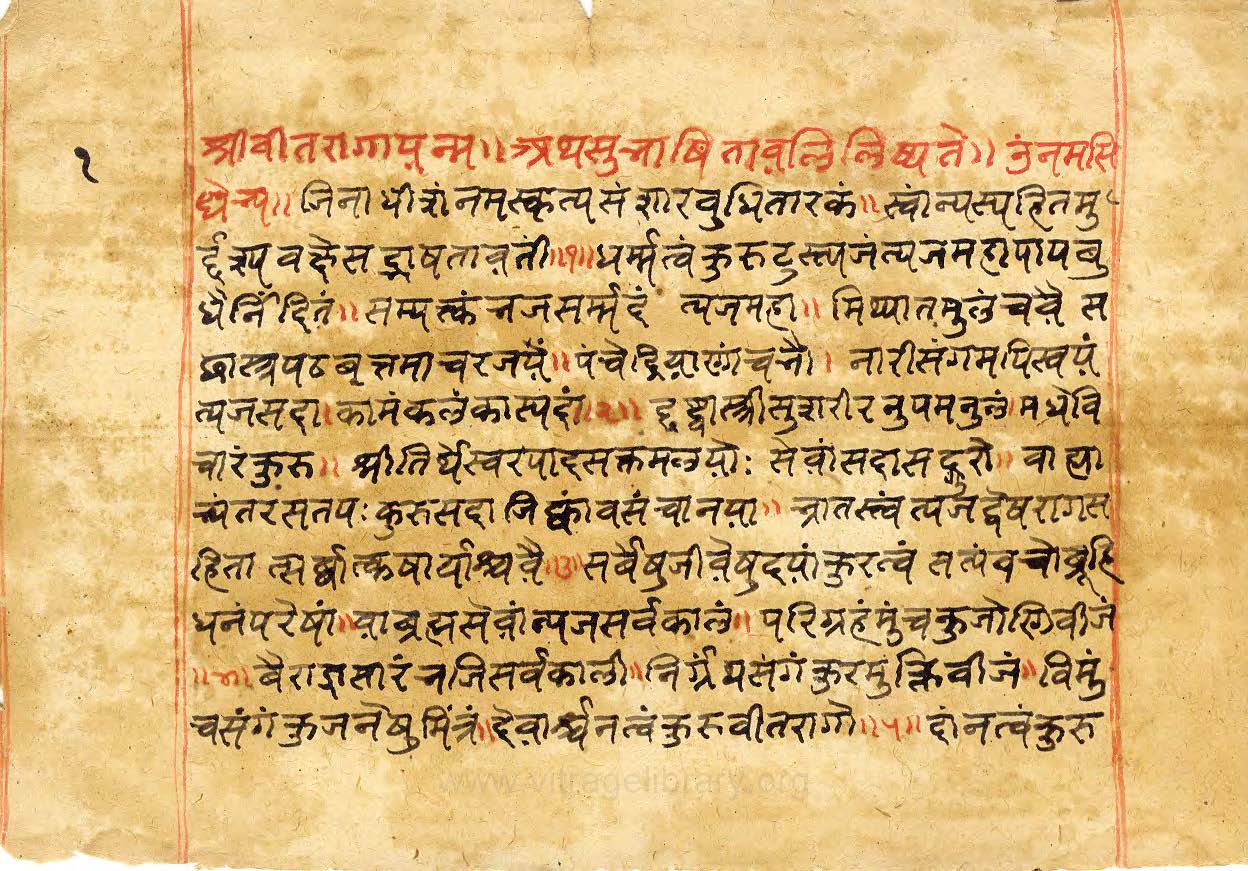 श्रीवीतरागायनम॥ अथसुभाषितावलिलिष्यते॥ उंनमसि
१
ध्धेभ्य॥ जिनाधीशंनमस्कृत्यसंशारवुधितारकं॥ स्वांन्यस्यहितमु
र्द्दश्यवक्षेसद्भाषतावलीं॥१॥ धर्म्मत्वंकुरुदुस्त्यजंत्यजमहापापबु
धैर्निंदितं॥ सम्यक्त्कंभजसर्म्मदं त्यजमहा॥ मिथ्यातमुलंचवै स
छास्त्रपठवृत्तमाचरजयं॥ पंचेंद्रियाणांचभौ। नारीसंगमपिस्वयं
त्यजसदा॥ कामंकलंकास्पदां॥२॥ दृष्ट्वास्त्रीसुशरीरनुपमतुलं॥ मध्येवि
चारंकुरु॥ श्रीतिर्थेस्वरपादसक्तमलयोः सेवांसदासद्गुरो॥ वाह्या
भ्यंतरसतपःकुरुसदा जिह्वांवसंचानया॥ भ्रातस्त्वं त्यजद्वेषरागस
हिता त्सर्व्वात्कषायाश्चवै॥३॥ सर्वेषुजीवेषुदयांकुरत्वं सत्यंवचोब्रूहि
धनंपरेषां॥ चाब्रह्मसेवांत्यजसर्वकालं॥ परिग्रहंमुंचकुजोनिवीजं
॥४॥ वैराग्यसारंभजिसर्वकाली॥ निर्ग्रंथसंगंकुरमुक्तिवीजं॥ विमुं
चसंगंकुजनेषुमिंत्रं॥ देवार्च्चनत्वंकुरुवीतरागो॥५॥ दांनत्वंकुरु
www.vitragelibrary.org